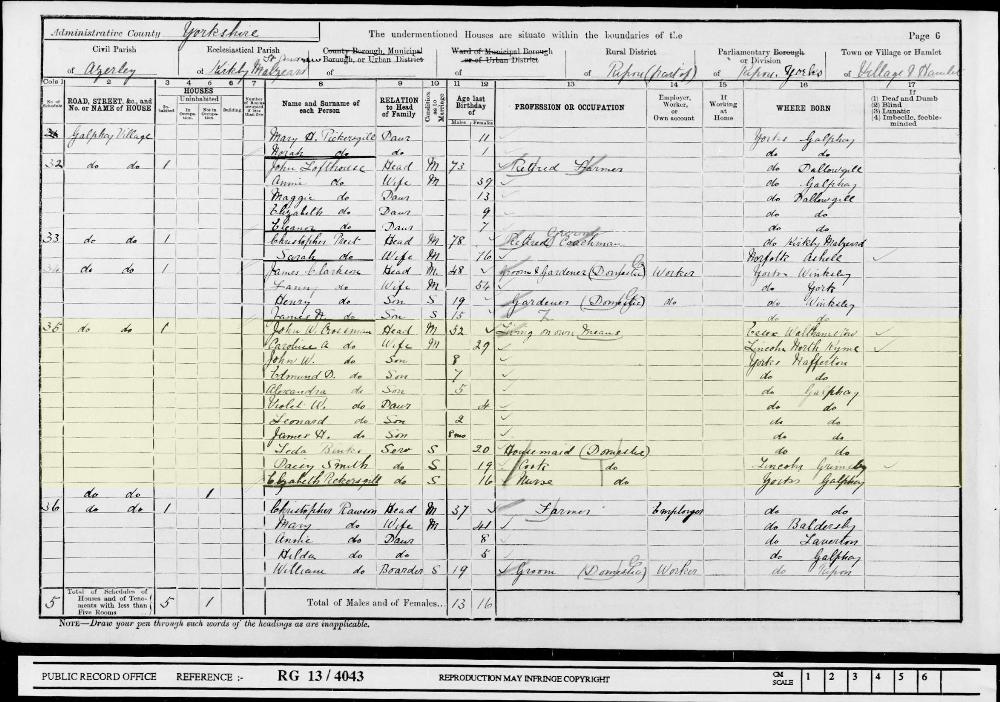 Administrative County Yorkshire The undermentioned Houses are situate within the boundaries of the Page 6
Civil Parish Ecclesiastical Parish County Borough, Municipal Borough, or Urban District Ward of Municipal Borough or of Urban District Rural District Parliamentary Borough or Division Town or Village or Hamlet
of Azerley of Kirkby Malzeard St Andrew of of of Ripon (part of) of Ripon, Yorks of Village & Hamlet
Cols 1 2 3 4 5 6 7 8 9 10 11 12 13 14 15 16 17
No. of Schedule ROAD, STREET, &c., and No. or NAME of HOUSE HOUSES Inhabited Uninhabited In Occupation Not in Occupation Building Number of Rooms occupied if less than five Name and Surname of each Person RELATION to Head of Family Condition as to Marriage Age last Birthday of Males Females PROFESSION OR OCCUPATION Employer, Worker, or Own account If Working at Home WHERE BORN If (1) Deaf and Dumb (2) Blind (3) Lunatic (4) Imbecile, feeble-minded
Galphay Village Mary H. Pickersgill Daur 11 Yorks Galphay
Norah do do 1 do do
32 do do 1 John Lofthouse Head M 73 Retired Farmer do Dallowgill
Annie do Wife M 39 do Galphay
Maggie do Daur 13 do Dallowgill
Elizabeth do Daur 9 do do
Eleanor do Daur 7 do do
33 do do 1 Christopher Head M 78 Retired Groom Coachman do Kirkby Malzeard
Sarah do Wife M 76 Norfolk
34 do do 1 James Clarkson Head M 48 Groom & Gardener (Domestic) Worker Yorks Winksley
Fanny do Wife M 54 do York
Henry do Son S 19 Gardener (Domestic) do do Winksley
James H. do Son S 15 do do
35 do do 1 John W. Crossman Head M 32 Living on own Means Essex Walthamstow
Caroline A do Wife M 29 Lincoln North Kyme
John W. do Son 8 Yorks Nafferton
Edmund D. do Son 7 do do
Alexandra do Son 5 do Galphay
Violet W. do Daur 4 do do
Leonard do Son 2 do do
James H. do Son 8 mo do do
Leda Binks Serv S 20 Housemaid (Domestic) do do
Daisy Smith do S 19 Cook do Lincoln Grimsby
Elizabeth Pickersgill do S 16 Nurse do Yorks Galphay
do do 1
36 do do 1 Christopher Rawson Head M 37 Farmer Employer do do
Mary do Wife M 41 do Baldersby
Annie do Daur 8 do Laverton
Hilda do do 5 do Galphay
William do Boarder S 19 Groom (Domestic) Worker do Ripon
5 Total of Schedules of Houses and of Tenements with less than Five Rooms 5 1 Total of Males and of Females... 13 16
NOTE—Draw your pen through such words of the headings as are inapplicable.
PUBLIC RECORD OFFICE REFERENCE :- RG 13/4043 REPRODUCTION MAY INFRINGE COPYRIGHT CM SCALE 1 2 3 4 5 6